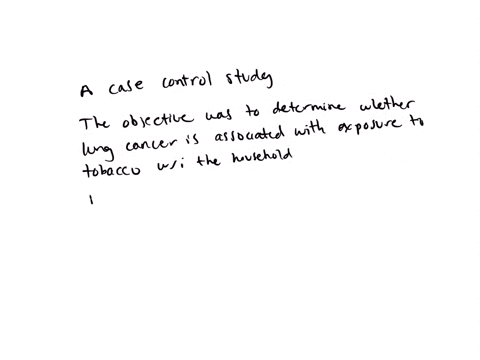 A case control study
The objective was to determine whether
lung cancer is associated with exposure to
tobacco w/i the household